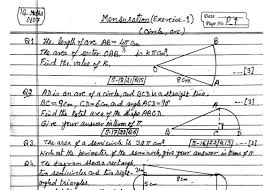 IG. Maths
0607
Mensuration (Exercise-1)
(Circle, arc)
Date
Page No. P-1
Q1 The length of arc AB = 4π cm.
The area of sector OAB is kπ cm².
Find the value of K.
B
O
8cm
A
[3]
Q2 AD is an arc of a circle, and BCD is a straight line.
BC = 9cm, CD = 6cm, and angle ACD = 90°
Find the total area of the shape ABCD
Give your answer in terms of π.
[3]
Q3. The area of a semicircle is 32π cm².
Work out the perimeter of the semicircle, give your answer in terms of π
Q4. The diagram shows a rectangle,
two semicircles and two right-
angled triangles.
8cm